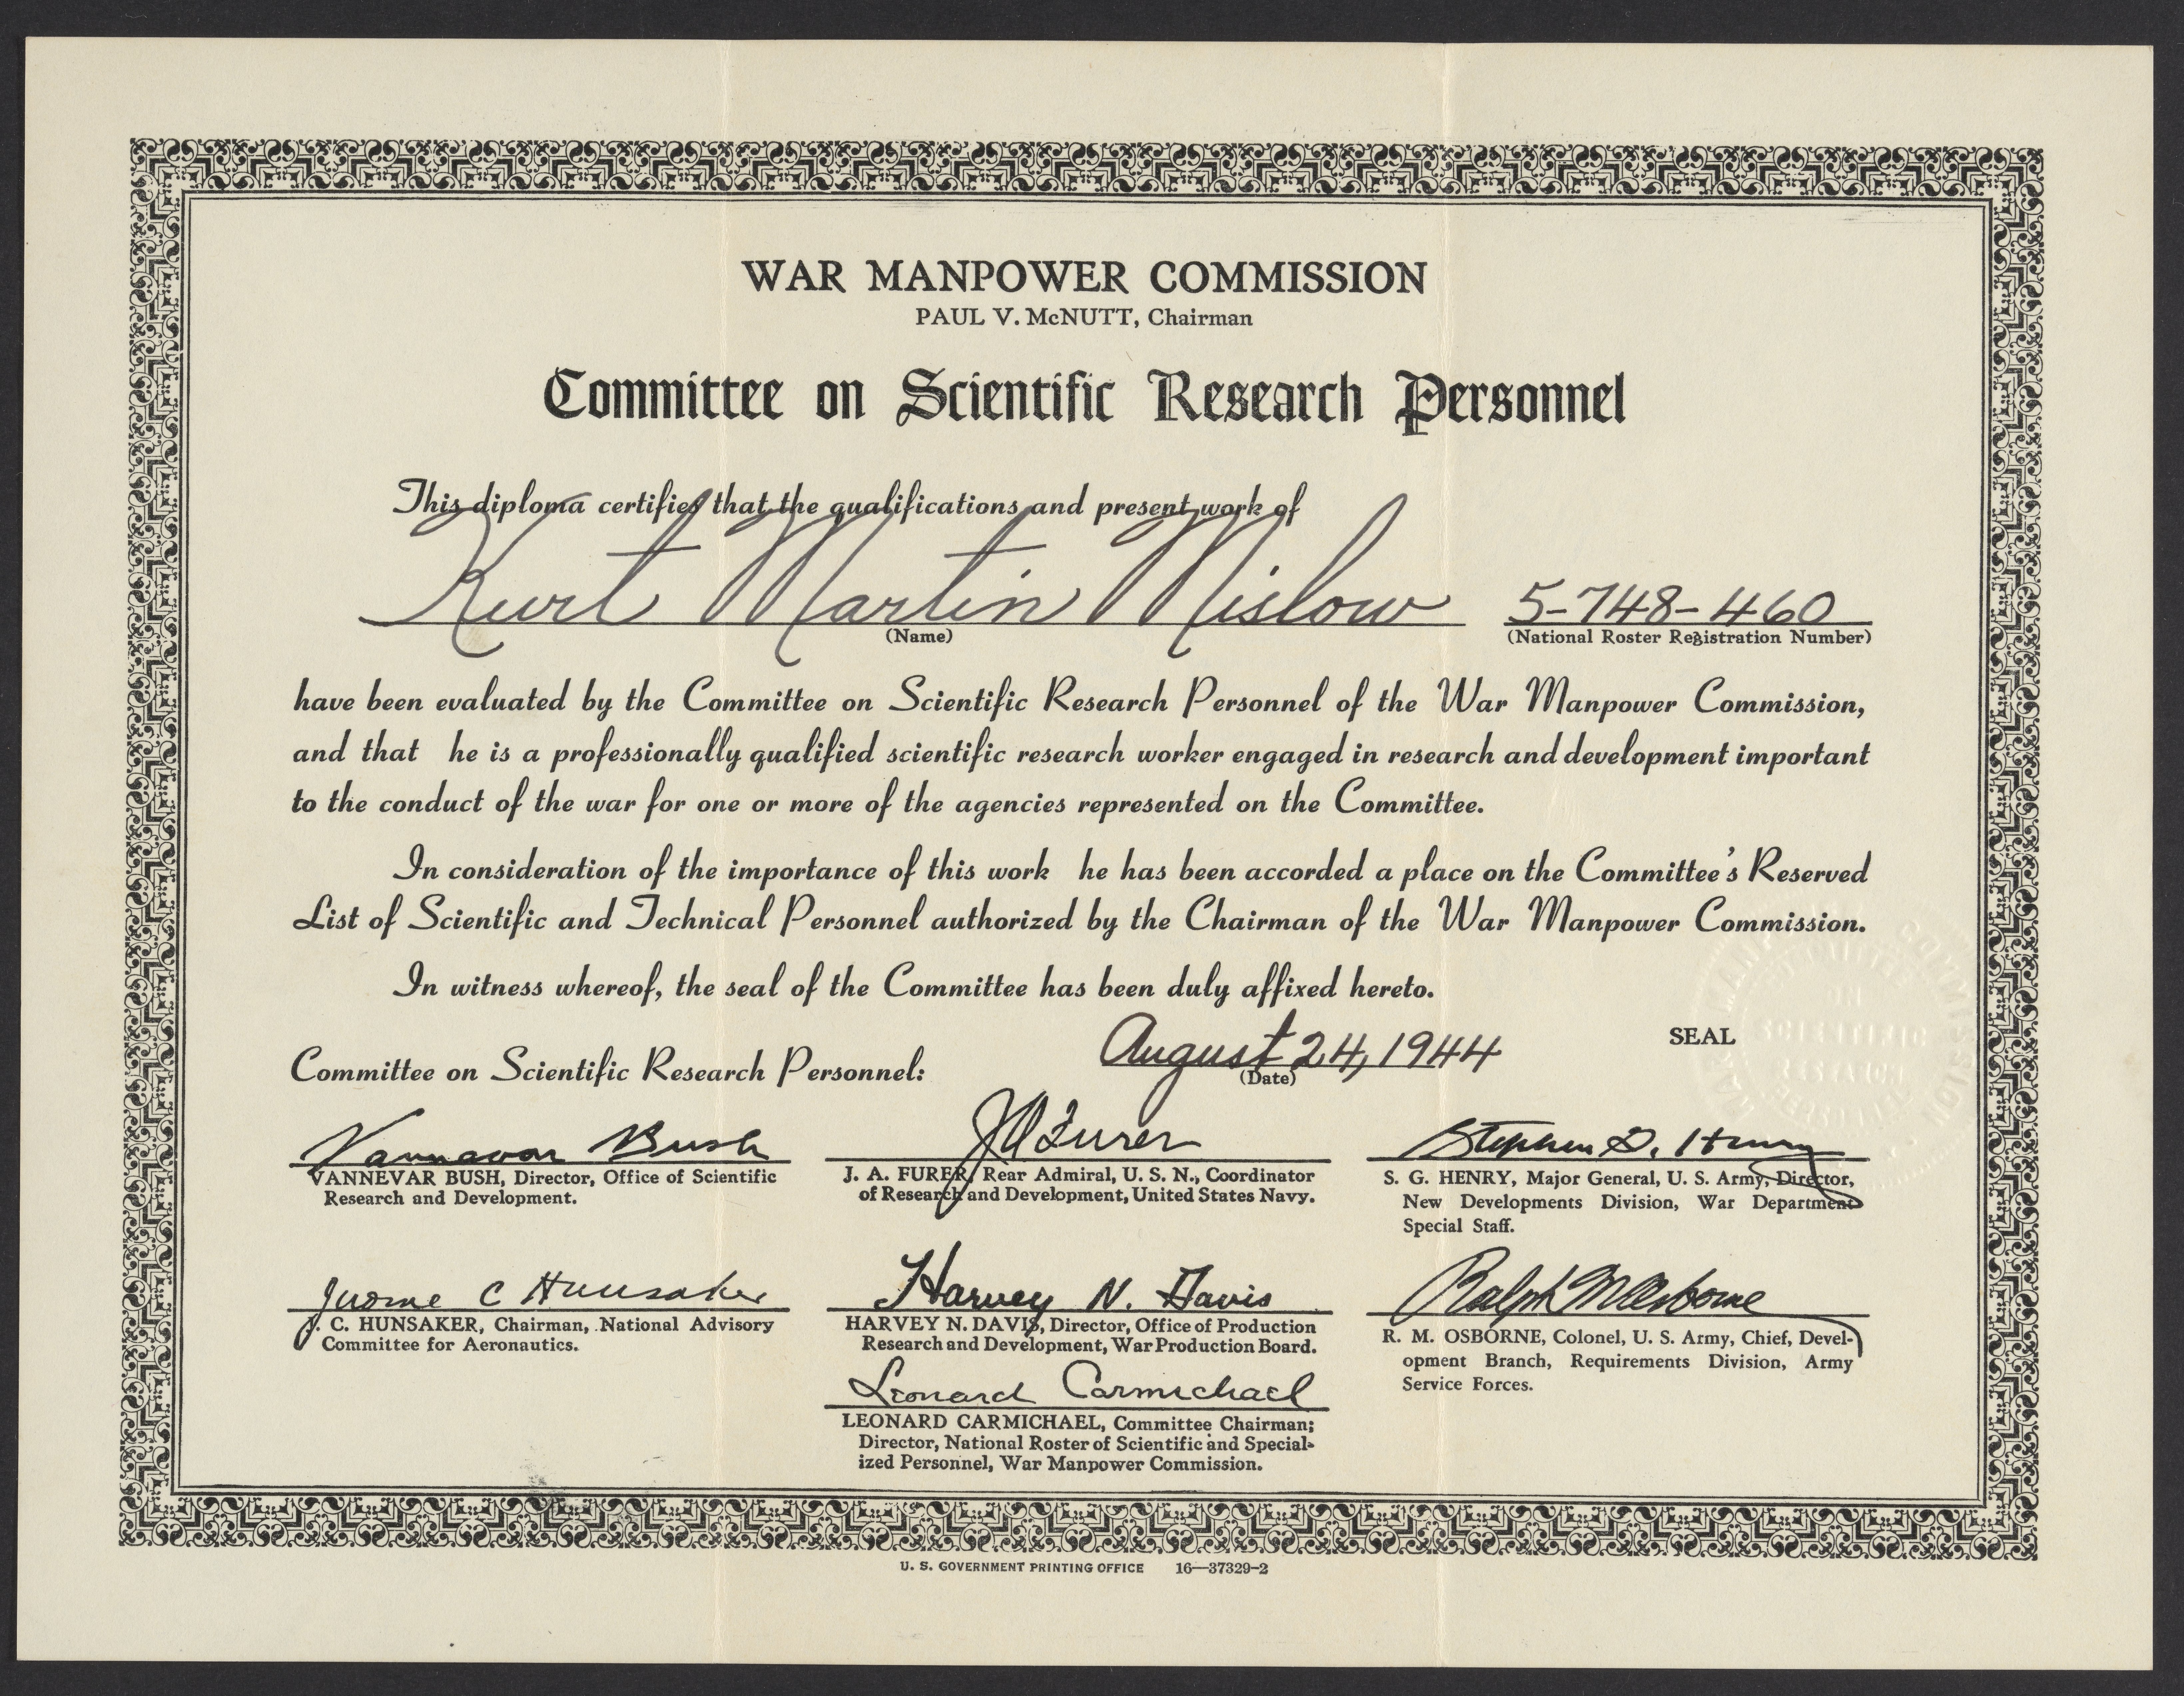 WAR MANPOWER COMMISSION
PAUL V. McNUTT, Chairman
Committee on Scientific Research Personnel
This diploma certifies that the qualifications and present work of
Kurt Martin Mislow 5-748-460
(Name) (National Roster Registration Number)
have been evaluated by the Committee on Scientific Research Personnel of the War Manpower Commission,
and that he is a professionally qualified scientific research worker engaged in research and development important
to the conduct of the war for one or more of the agencies represented on the Committee.
In consideration of the importance of this work he has been accorded a place on the Committee's Reserved
List of Scientific and Technical Personnel authorized by the Chairman of the War Manpower Commission.
In witness whereof, the seal of the Committee has been duly affixed hereto.
August 24, 1944
(Date)
SEAL
COMMITTEE
ON
SCIENTIFIC
RESEARCH
PERSONNEL
COMMISSION
Committee on Scientific Research Personnel:
Vannevar Bush
VANNEVAR BUSH, Director, Office of Scientific
Research and Development.
JA Furer
J. A. FURER, Rear Admiral, U. S. N., Coordinator
of Research and Development, United States Navy.
Stephen G. Henry
S. G. HENRY, Major General, U. S. Army, Director,
New Developments Division, War Department
Special Staff.
Jerome C Hunsaker
J. C. HUNSAKER, Chairman, National Advisory
Committee for Aeronautics.
Harvey N. Davis
HARVEY N. DAVIS, Director, Office of Production
Research and Development, War Production Board.
Ralph M Osborne
R. M. OSBORNE, Colonel, U. S. Army, Chief, Devel-
opment Branch, Requirements Division, Army
Service Forces.
Leonard Carmichael
LEONARD CARMICHAEL, Committee Chairman;
Director, National Roster of Scientific and Special-
ized Personnel, War Manpower Commission.
U. S. GOVERNMENT PRINTING OFFICE 16—37329-2